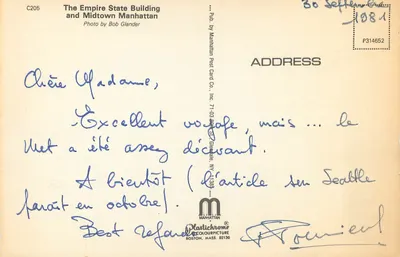 C205
The Empire State Building
and Midtown Manhattan
Photo by Bob Glander
30 Septembre
1981
P314652
ADDRESS
Pub. by Manhattan Post Card Co., Inc.
Chère Madame,
Excellent voyage, mais ... le
Met a été assez décevant.
A bientôt (l'article sur Seattle
paraît en octobre).
Best regards
MANHATTAN
Plastichrome
COLOURPICTURE
BOSTON, MASS. 02130